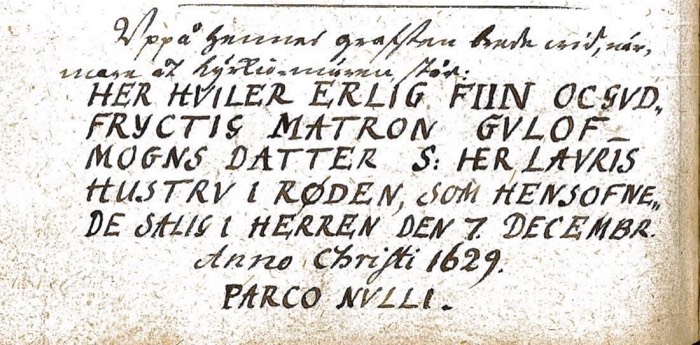 Uppå hennes grafsten brede wid, när,
mare åt kyrkio-muren står:
HER HVILER ERLIG FIIN OCGVD„
FRYCTIG MATRON GVLOF_
MOGNS DATTER S: HER LAVRIS
HUSTRV I RØDEN, SOM HENSOFNE„
DE SALIG I HERREN DEN 7. DECEMBR.
Anno Christi 1629.
PARCO NVLLI.